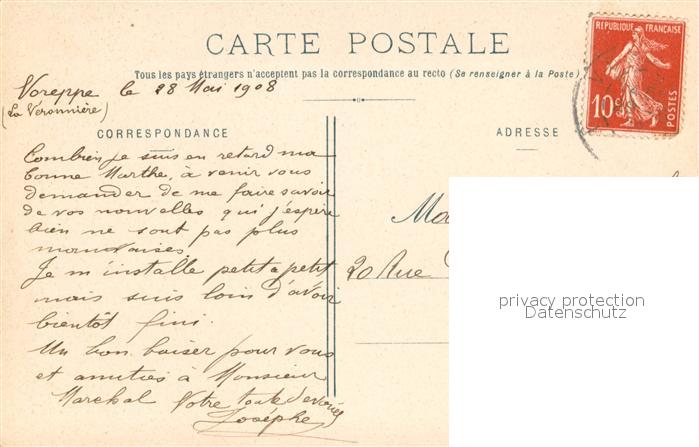 CARTE POSTALE
Tous les pays étrangers n'acceptent pas la correspondance au recto (Se renseigner à la Poste)
Voreppe le 28 Mai 1908
(La Veronnière)
CORRESPONDANCE
ADRESSE
REPUBLIQUE FRANÇAISE
10c
POSTES
Combien je suis en retard ma
bonne Marthe, à venir vous
demander de me faire savoir
de vos nouvelles qui j'espère
bien ne sont pas plus
mauvaises.
Je m'installe petit à petit
mais suis loin d'avoir
bientôt fini.
Un bon baiser pour vous
et amitiés à Monsieur
Marchal Votre toute dévouée
Josèphe
20 Rue
privacy protection
Datenschutz